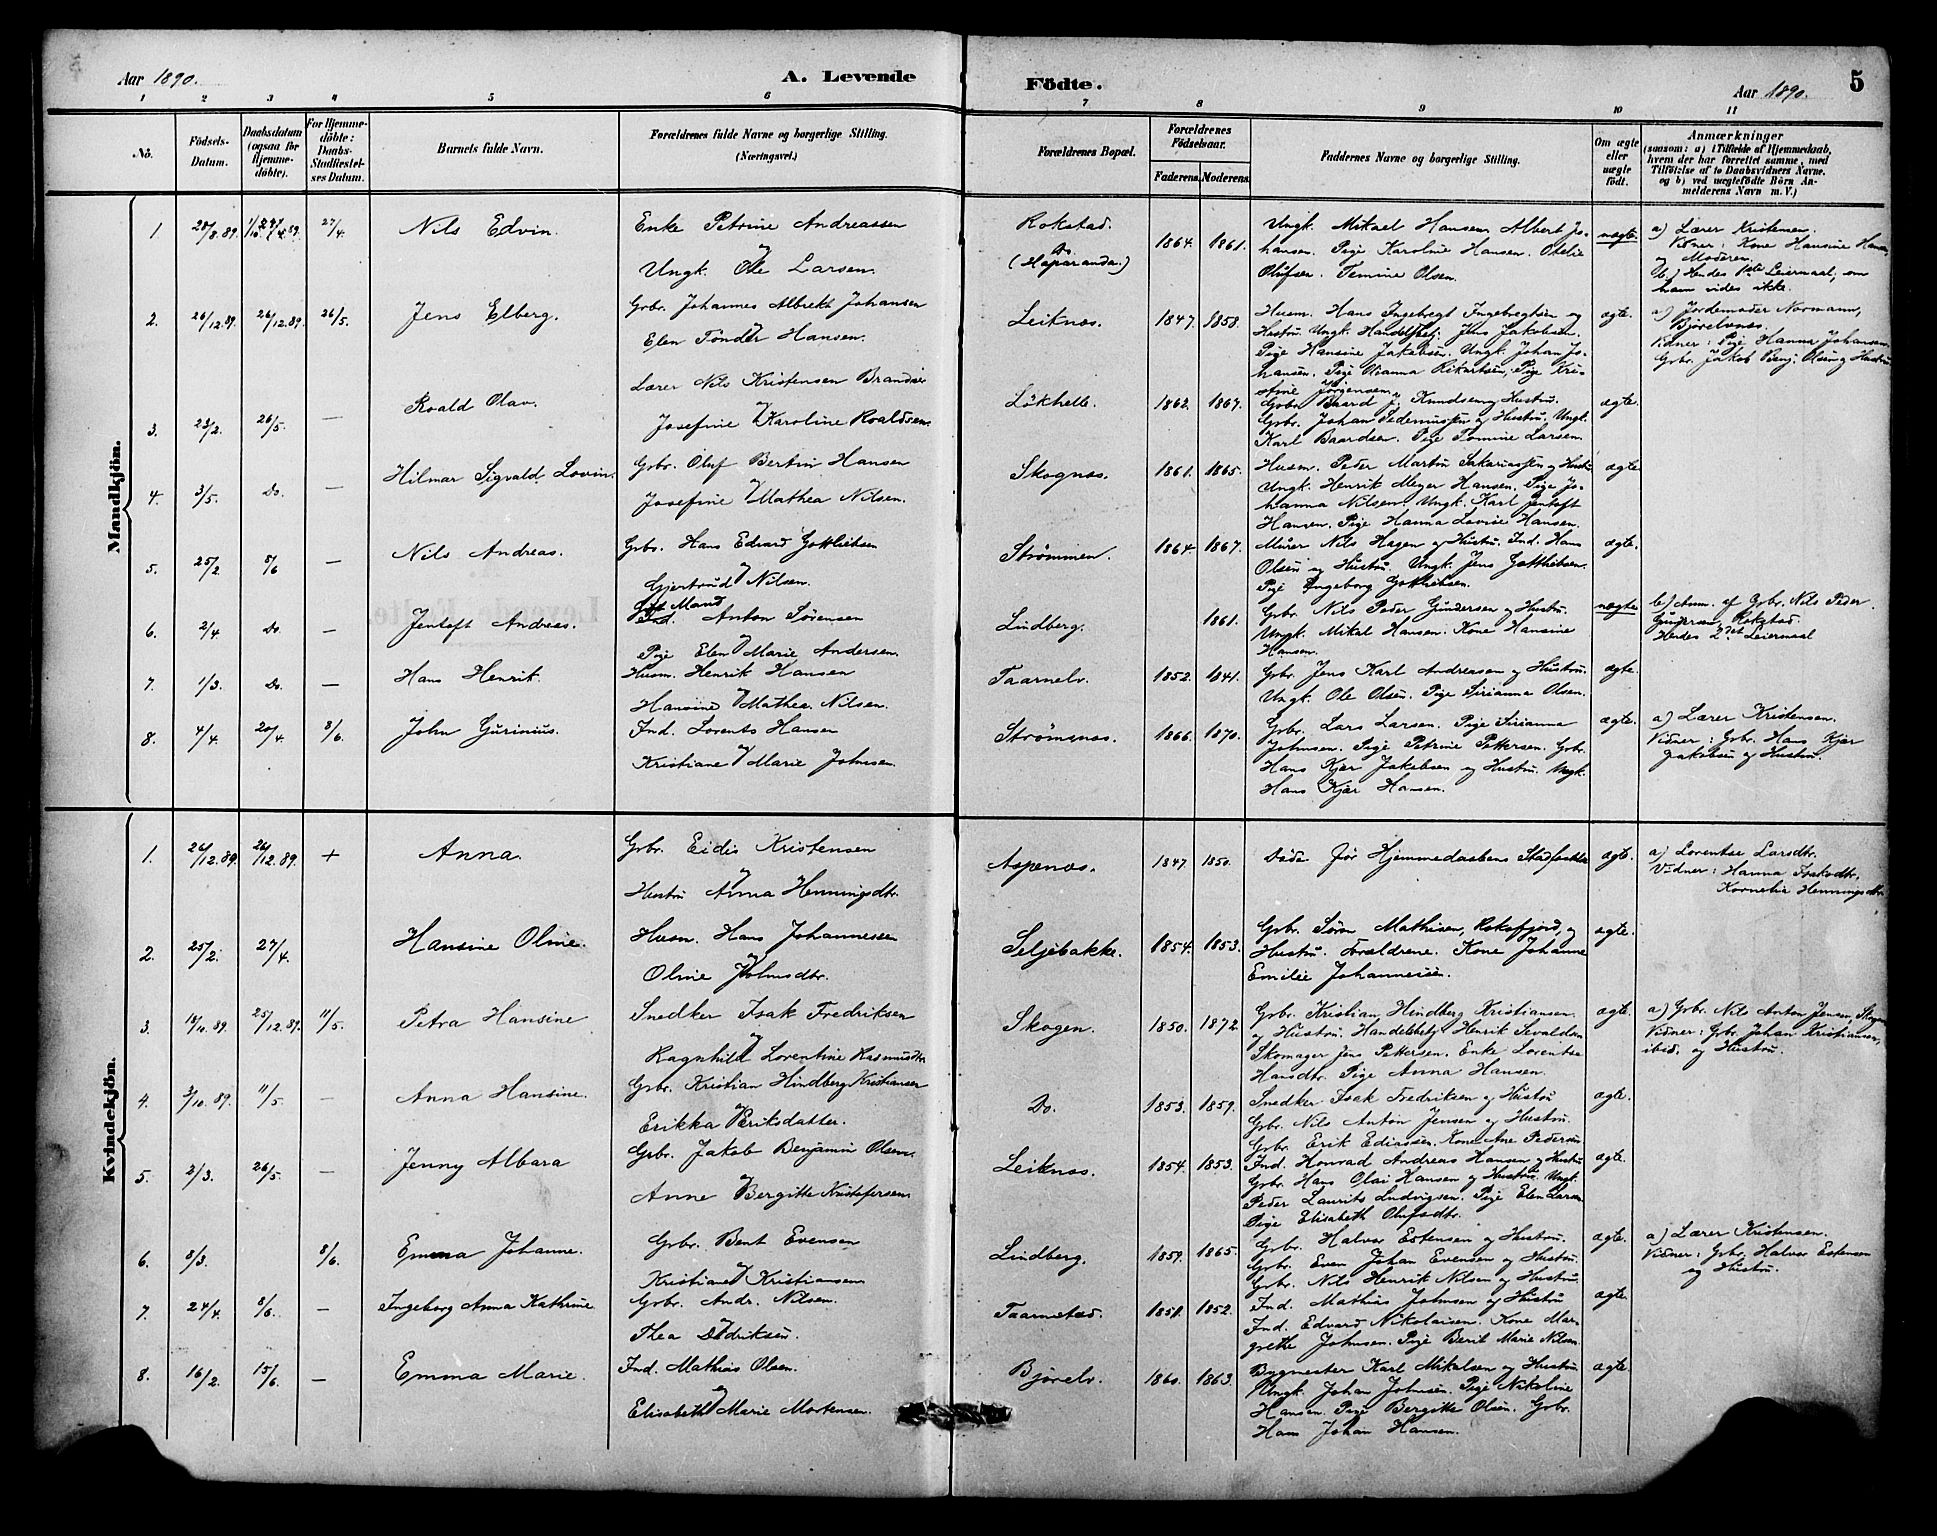 Aar 1890.
A. Levende
Födte.
Aar 1890.
5
1 2 3 4 5 6 7 8 9 10 11
No.
Födsels-
Datum.
Daabsdatum
(ogsaa for
Hjemme-
döbte).
For Hjemme-
döbte:
Daabs-
Stadfæstel-
ses Datum.
Barnets fulde Navn.
Forældrenes fulde Navne og borgerlige Stilling.
(Næringsvei.)
Forældrenes Bopæl.
Forældrenes
Födselsaar.
Faderens. Moderens.
Faddernes Navne og borgerlige Stilling.
Om ægte
eller
uægte
födt.
Anmærkninger
(saasom: a) i Tilfælde af Hjemmedaab,
hvem der har forrettet samme, med
Tilföielse af to Daabsvidners Navne,
og b) ved uægtefödte Börn An-
melderens Navn m. V.)
Mandkjön.
1 28/8.89. 27/4. Nils Edvin.
Enke Petrine Andreassen
Ungk. Ole Larsen.
Rokstad.
Do.
(Haparanda.)
1864. 1861.
Ungk. Mikael Hansen. Albert Jo-
hansen. Pige Karoline Hansen.
Olufsen. Temine Olsen.
uægte
a) Lærer Kristensen.
Vidner: Kone Hansine Hansen
og Moderen.
b) Hendes 1ste Leiermaal, om
ham vides ikke.
2. 26/12.89. 26/12.89. 26/5. Jens Elberg.
Grbr. Johannes Albrekt Johansen
Elen Tönder Hansen.
Leiknes.
1847. 1858.
Husm. Hans Ingebregt Ingebregtsen og
Hustru. Ungk. Handelsbetj. Jens Jakobsen.
Pige Hansine Jakobsen. Ungk. Johan Jo-
hansen. Pige Vianna Rikartsen, Pige Kri-
stine Jörgensen.
ægte.
a) Jordemoder Normann,
Bjorelvnes.
Vidner: Pige Hanna Johansen
Grbr. Jakob Benj. Olsen og Hustru
3. 23/2. 26/5. — Roald Olav.
Lærer Nils Kristensen
Josefine Karoline Roaldsen.
Lökhelle.
1862. 1867.
Grbr. Baard J. Knudsen og Hustru.
Grbr. Johan Pedersen og Hustru. Ungk.
Karl Baardsen. Pige Tomine Larsen.
ægte.
4. 3/5. Do. — Hilmar Sigvald Lovin.
Grbr. Oluf Bertin Hansen
Josefine Mathea Nilsen.
Skognes.
1861. 1865.
Husm. Peder Martin Sakariassen og Hustru
Ungk. Henrik Meyer Hansen. Pige Jo-
hanna Nilsen. Ungk. Karl Jentoft
Hansen. Pige Hanna Lovise Hansen.
ægte
5. 25/2. 8/6 — Nils Andreas.
Grbr. Hans Edvard Gottliebsen
Gjertrud Nilsen.
Strömmen.
1864. 1867.
Murer Nils Hagen og Hustru. Ind. Hans
Olsen og Hustru. Ungk. Jens Gottliebsen.
Pige Ingeborg Gottliebsen.
ægte.
6. 2/4. Do. — Jentoft Andreas.
Gift Mand
Anton Sörensen
Pige Elen Marie Andersen.
Lindberg.
1861.
Grbr. Nils Peder Gundersen og Hustru.
Ungk. Mikal Hansen. Kone Hansine
Hansen.
uægte
b) Anm. af Grbr. Nils Peder
Gundersen, Rokstad.
Hendes 2det Leiermaal
7. 1/3. Do. — Hans Henrik.
Husm. Henrik Hansen
Hansine Mathea Nilsen.
Taarnelv.
1852. 1841.
Grbr. Jens Karl Andreasen og Hustru.
Ungk. Ole Olsen. Pige Sirianna Olsen.
ægte.
8. 4/4. 20/4. 8/6. John Gurinius.
Ind. Lorents Hansen
Kristiane Marie Johnsen.
Strömsnes.
1866. 1870.
Grbr. Lars Larsen. Pige Sirianna
Johnsen. Pige Petrine Pettersen. Grbr.
Hans Kjær Jakobsen og Hustru. Ungk.
Hans Kjær Hansen.
ægte.
a) Lærer Kristensen.
Vidner: Grbr. Hans Kjær
Jakobsen og Hustru.
Kvindekjön.
1. 26/12.89. 26/12.89. + Anna.
Grbr. Eidis Kristensen
Hustru Anna Henningsdtr.
Aspenes.
1847. 1850.
Döde för Hjemmedaabens Stadfæstelse
ægte.
a) Lorentse Larsdtr.
Vidner: Hanna Isaksdtr.
Kornelia Henningsdtr.
2. 25/2. 27/4. Hansine Oline.
Husm. Hans Johannessen
Oline Johnsdtr.
Seljebakke.
1854. 1853.
Grbr. Sörn Mathisen, Rokefjord, og
Hustru. Forældrene. Kone Johanne
Emilie Johannessen.
ægte.
3. 25/12.89. 11/5. Petra Hansine
Snedker Isak Fredriksen
Ragnhild Lorentine Rasmusdtr
Skogen.
1850. 1872.
Grbr. Kristian Hindberg Kristiansen.
og Hustru. Handelsbetj. Henrik Sivaldsen
Skomager Jens Pettersen. Enke Lorentse
Hansdtr. Pige Anna Hansen.
ægte.
a) Grbr. Nils Anton Jensen, Skogen
Vidner: Grbr. Johan Kristiansen,
ibid. og Hustru.
4. 3/10.89. 11/5. — Anna Hansine.
Grbr. Kristian Hindberg Kristiansen
Erikka Eriksdatter.
Do.
1853. 1859.
Snedker Isak Fredriksen og Hustru
Grbr. Nils Anton Jensen og Hustru.
Grbr. Erik Ediassen. Kone Ane Pedersen
ægte.
5. 2/3. 26/5. — Jenny Albara
Grbr. Jakob Benjamin Olsen.
Anne Bergitte Kristofersen.
Leiknes.
1854. 1853.
Ind. Konrad Andreas Hansen og Hustru
Grbr. Hans Olai Hansen og Hustru. Ungk.
Peder Laurits Ludvigsen. Pige Elen Larsen
Pige Elisabeth Olufsdtr.
ægte.
6. 8/3. 8/6. Emma Johanne.
Grbr. Bent Evensen
Kristiane Kristiansen
Lindberg.
1859. 1865.
Grbr. Halvor Estensen og Hustru.
Grbr. Even Johan Evensen og Hustru.
Grbr. Nils Henrik Nilsen og Hustru.
ægte.
a) Lærer Kristensen.
Vidner: Grbr. Halvor Estensen
og Hustru.
7. 24/4. 8/6. — Ingeborg Anna Kathrine
Grbr. Andr. Nilsen.
Thea Didriksen.
Taarnstad.
1851. 1852.
Ind. Mathias Johnsen og Hustru
Ind. Edvard Nikolaisen. Kone Mar-
grethe Johnsen. Pige Berit Marie Nilsen
ægte.
8. 16/2. 15/6. — Emma Marie.
Ind. Mathias Olsen.
Elisabeth Marie Mortensen.
Bjorelv.
1860. 1863.
Bygmester Karl Mikalsen og Hustru
Ungk. Johan Johnsen. Pige Nikoline
Hansen. Pige Bergitte Olsen. Grbr.
Hans Johan Hansen.
ægte.